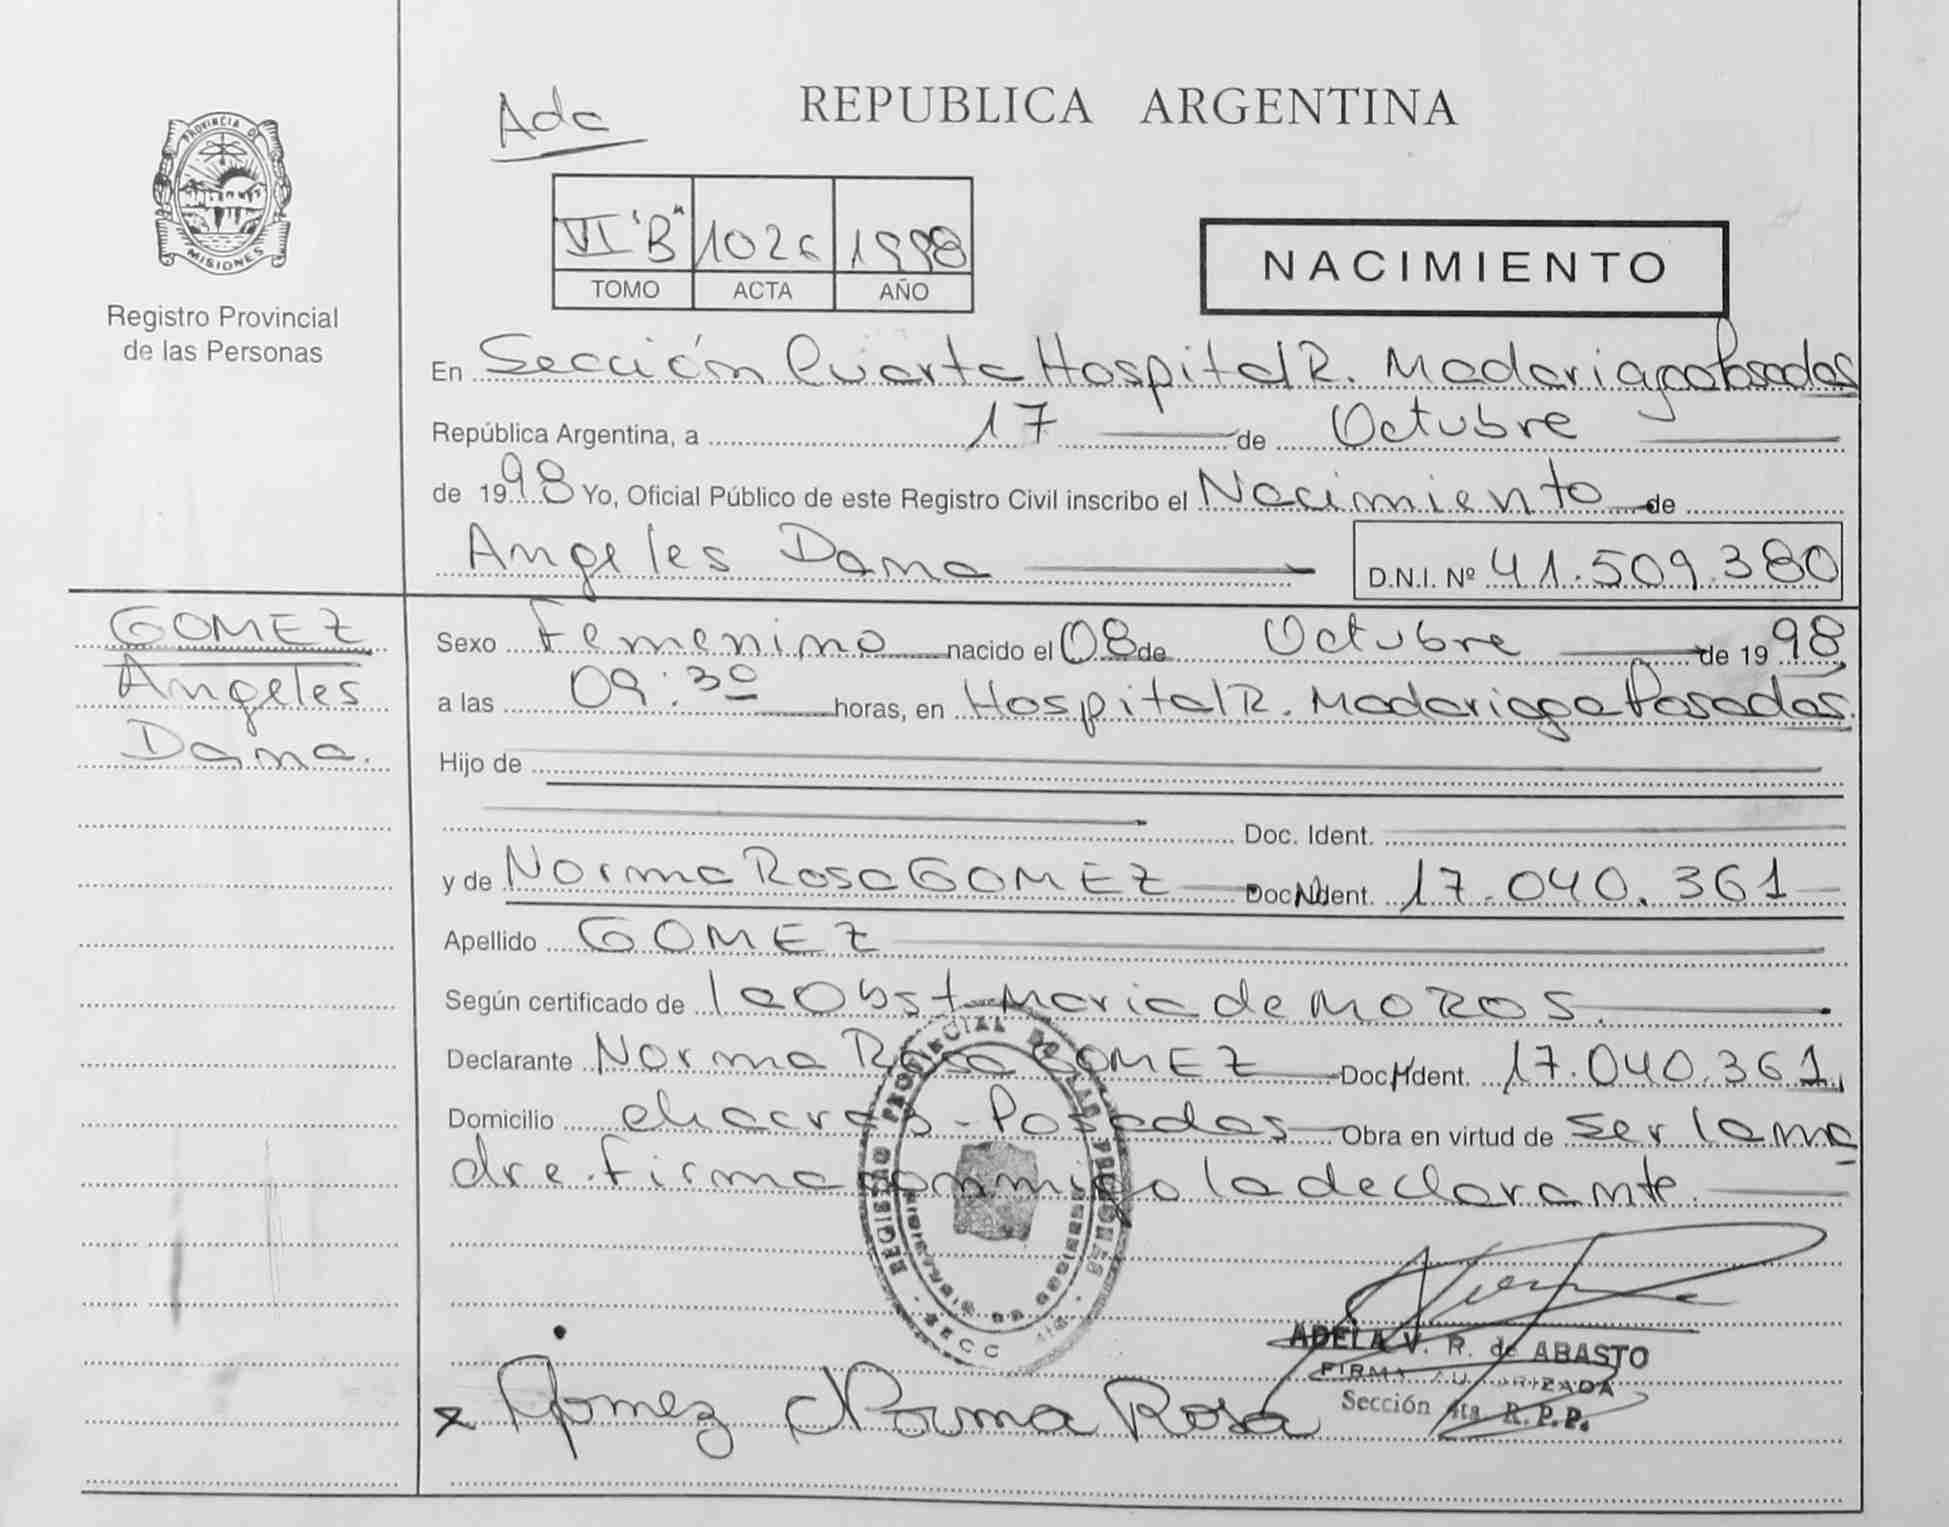 PROVINCIA DE
MISIONES
Registro Provincial
de las Personas
Ada
REPUBLICA ARGENTINA
VI "B" 1026 1998
TOMO ACTA AÑO
NACIMIENTO
En Sección Cuarta Hospital R. Madariaga Posadas
República Argentina, a 17 de Octubre
de 1998 Yo, Oficial Público de este Registro Civil inscribo el Nacimiento de
Angeles Dama D.N.I. Nº 41.509.380
GOMEZ
Angeles
Dama.
Sexo Femenino nacido el 08 de Octubre de 1998
a las 09:30 horas, en Hospital R. Madariaga Posadas.
Hijo de
Doc. Ident.
y de Norma Rosa GOMEZ Doc. Ident. 17.040.361
Apellido GOMEZ
Según certificado de la Obst. Maria de MOROS.
Declarante Norma Rosa GOMEZ Doc. Ident. 17.040.361
Domicilio chacras - Posadas Obra en virtud de ser la ma
dre. firma conmigo la declarante.
REGISTRO PROVINCIAL DE LAS PERSONAS
SECC
ADELA V. R. de ABASTO
FIRMA AUTORIZADA
Sección 4ta. R.P.P.
x Gomez Norma Rosa